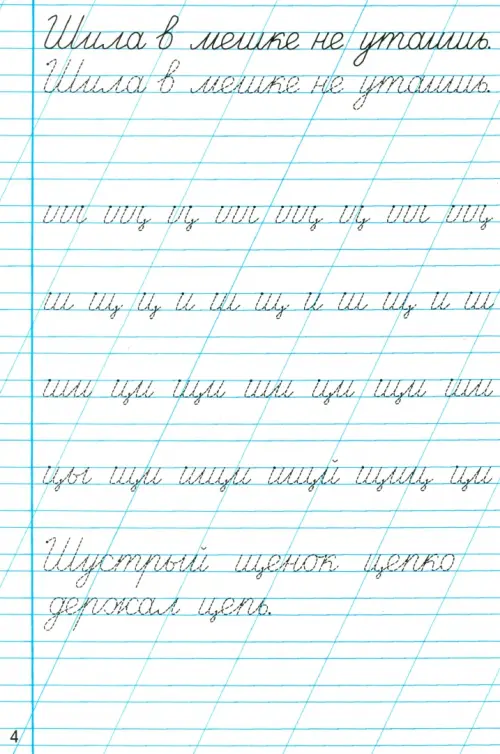 Шила в мешке не утаишь.
Шила в мешке не утаишь.
ш щ ц ш щ ц ш щ
ш щ ц и ш щ и ш щ и ш
ши ци щи ши ци щи ши
цы щи шиши щий щиц ци
Шустрый щенок цепко
держал цепь.
4